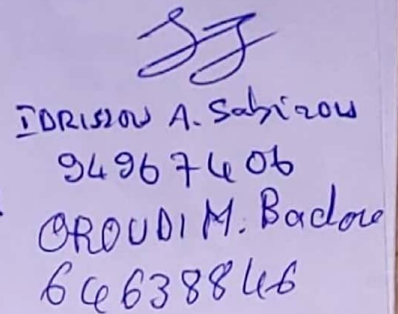 IDRISSOU A. Sabirou
94967406
OROUDI M. Badou
64638846